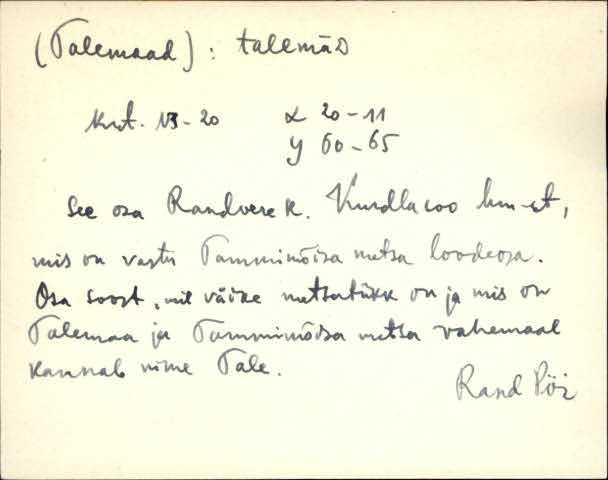 (Talemaad) : talemāD
Krt. 13-20 x 20-11
y 60-65
See osa Randvere k. Kurdlasoo hm-st,
mis on vastu Tammimõisa metsa loodeosa.
Osa soost, mil väike metsatükk on ja mis on
Talemaa ja Tammimõisa metsa vahemaal
kannab nime Tale.
Rand Pöi